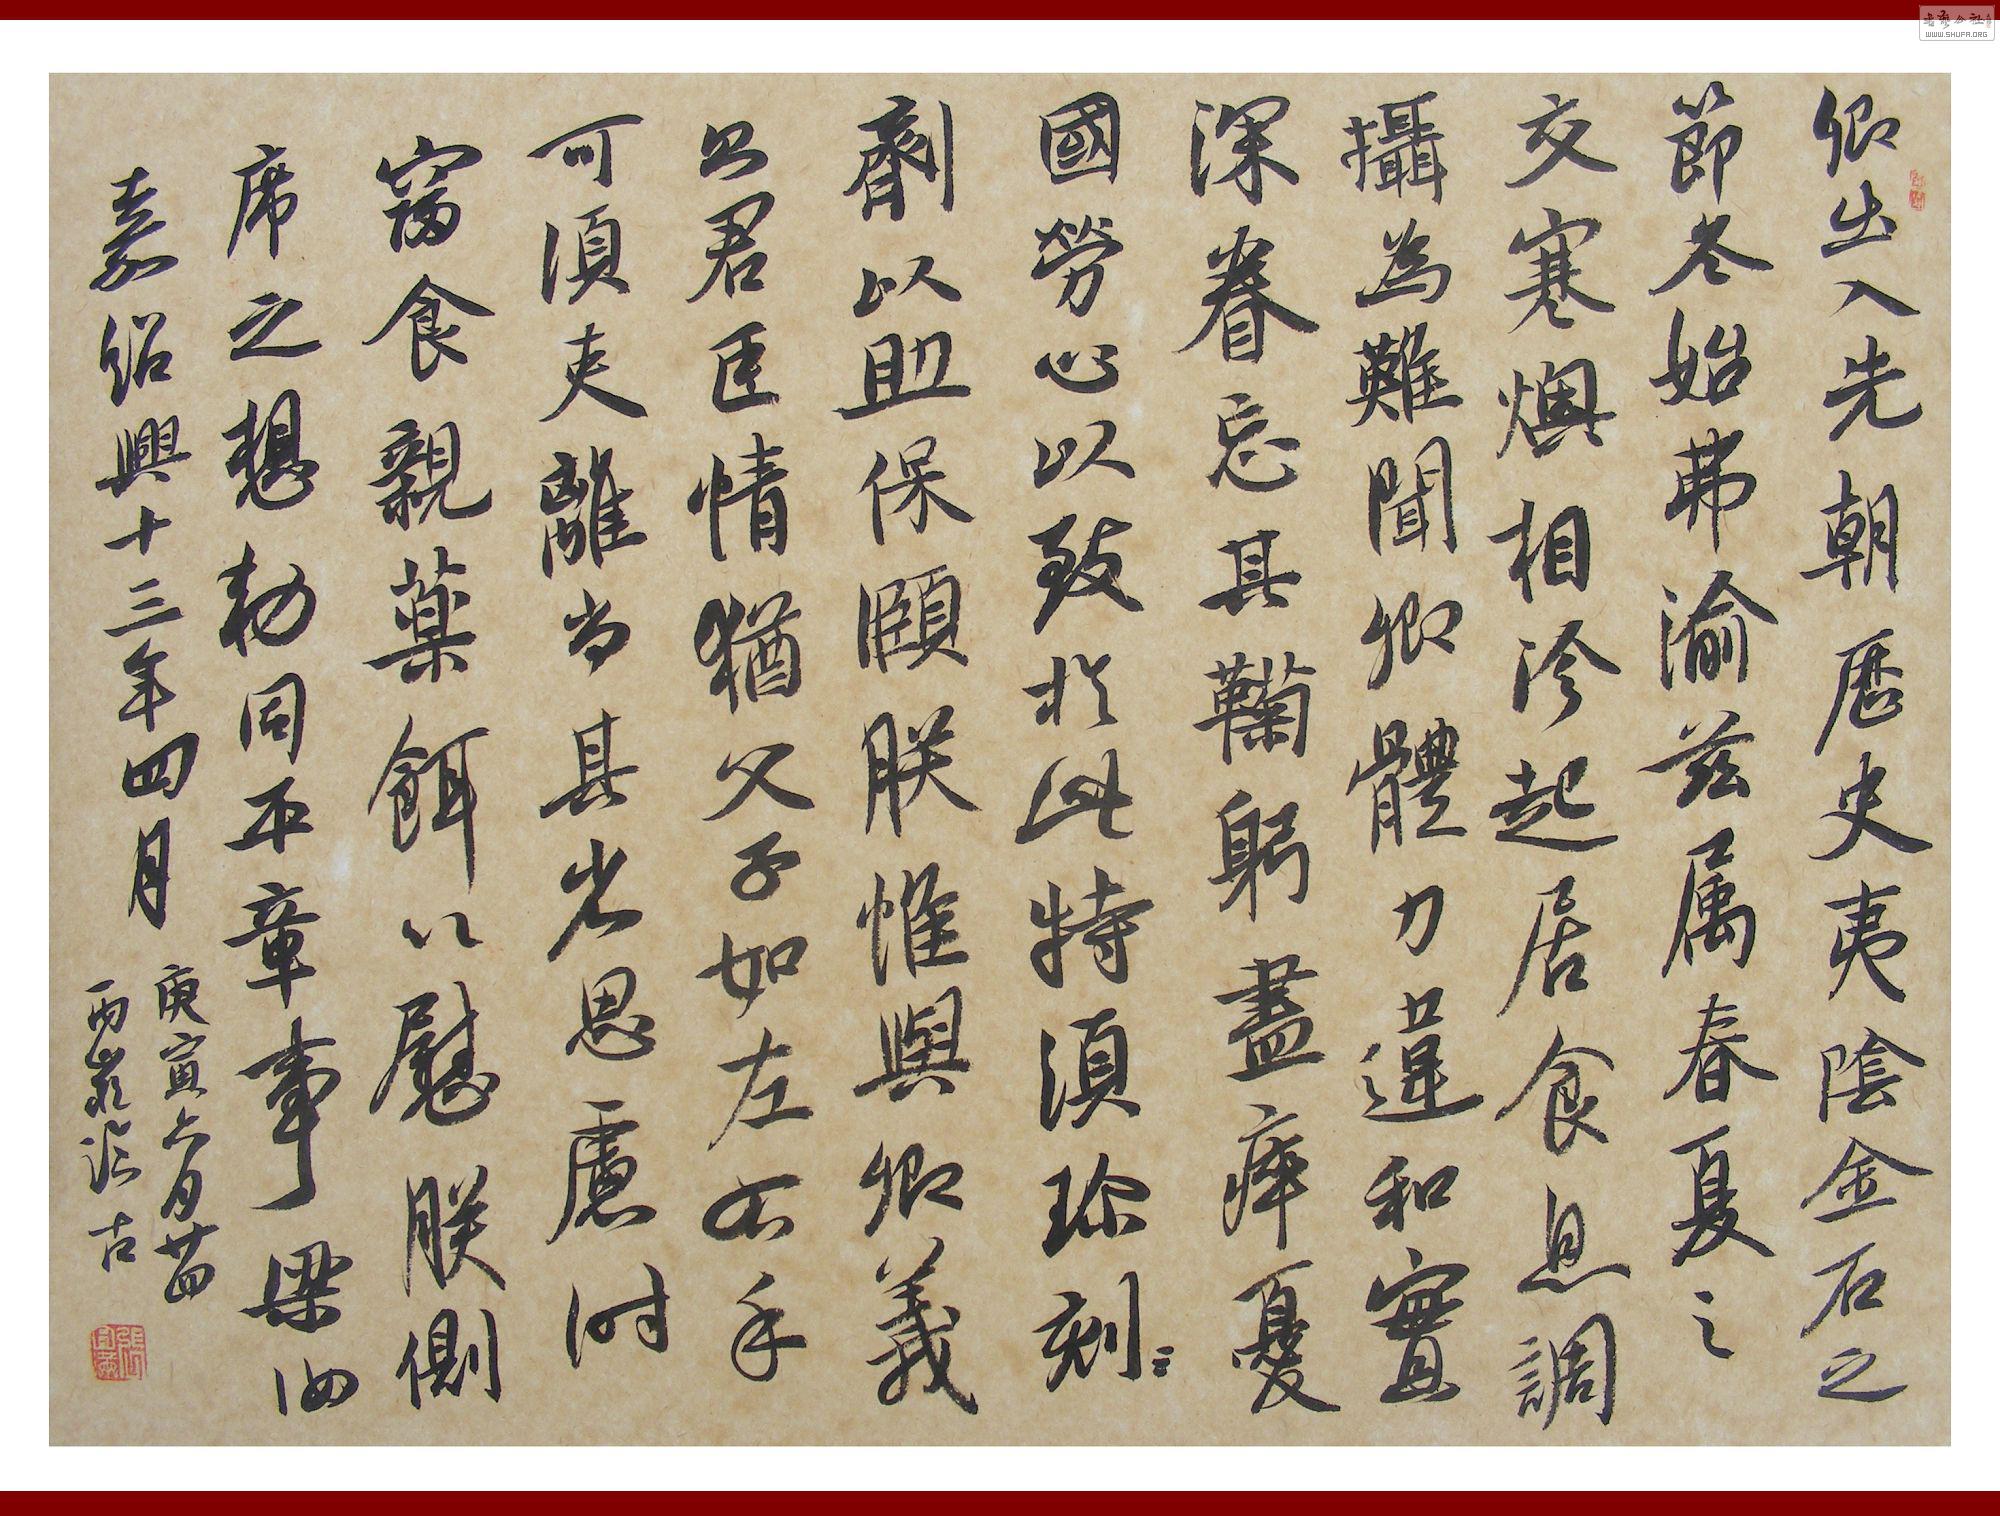 卿出入先朝歷史夷陰金石之
節冬始弗渝茲属春夏之
交寒燠相沴起居食息調
攝為難聞卿體力違和實
深眷忘其鞠躬盡瘁憂
國勞心以致於此特須珍剂
劑以助保頤朕惟與卿義
公君臣情猶父子如左右手
可須夾離当其劣思慮时
寤食親藥餌以慰朕側
席之想勅同平章事梁汝
嘉紹興十三年四月
庚寅六月廿四
西巖法古
書藝公社
WWW.SHUFA.ORG